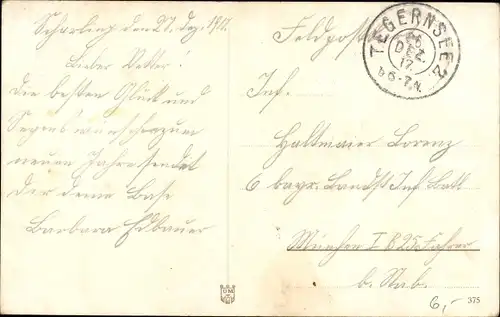 Scharling den 27. Dez. 1917.
Lieber Vetter.
Die besten Glück und
Segenswünsche zum
neuen Jahre sendet
Dir deine Base
Barbara Erlbauer
Feldpost
TEGERNSEE 2
26
DEZ.
17.
6-7.N.
Inf.
Haltmaier Lorenz
6 bayr. Landst Inf. Batl
München I B 25. Fahrer
b. Stab.
6,-
375